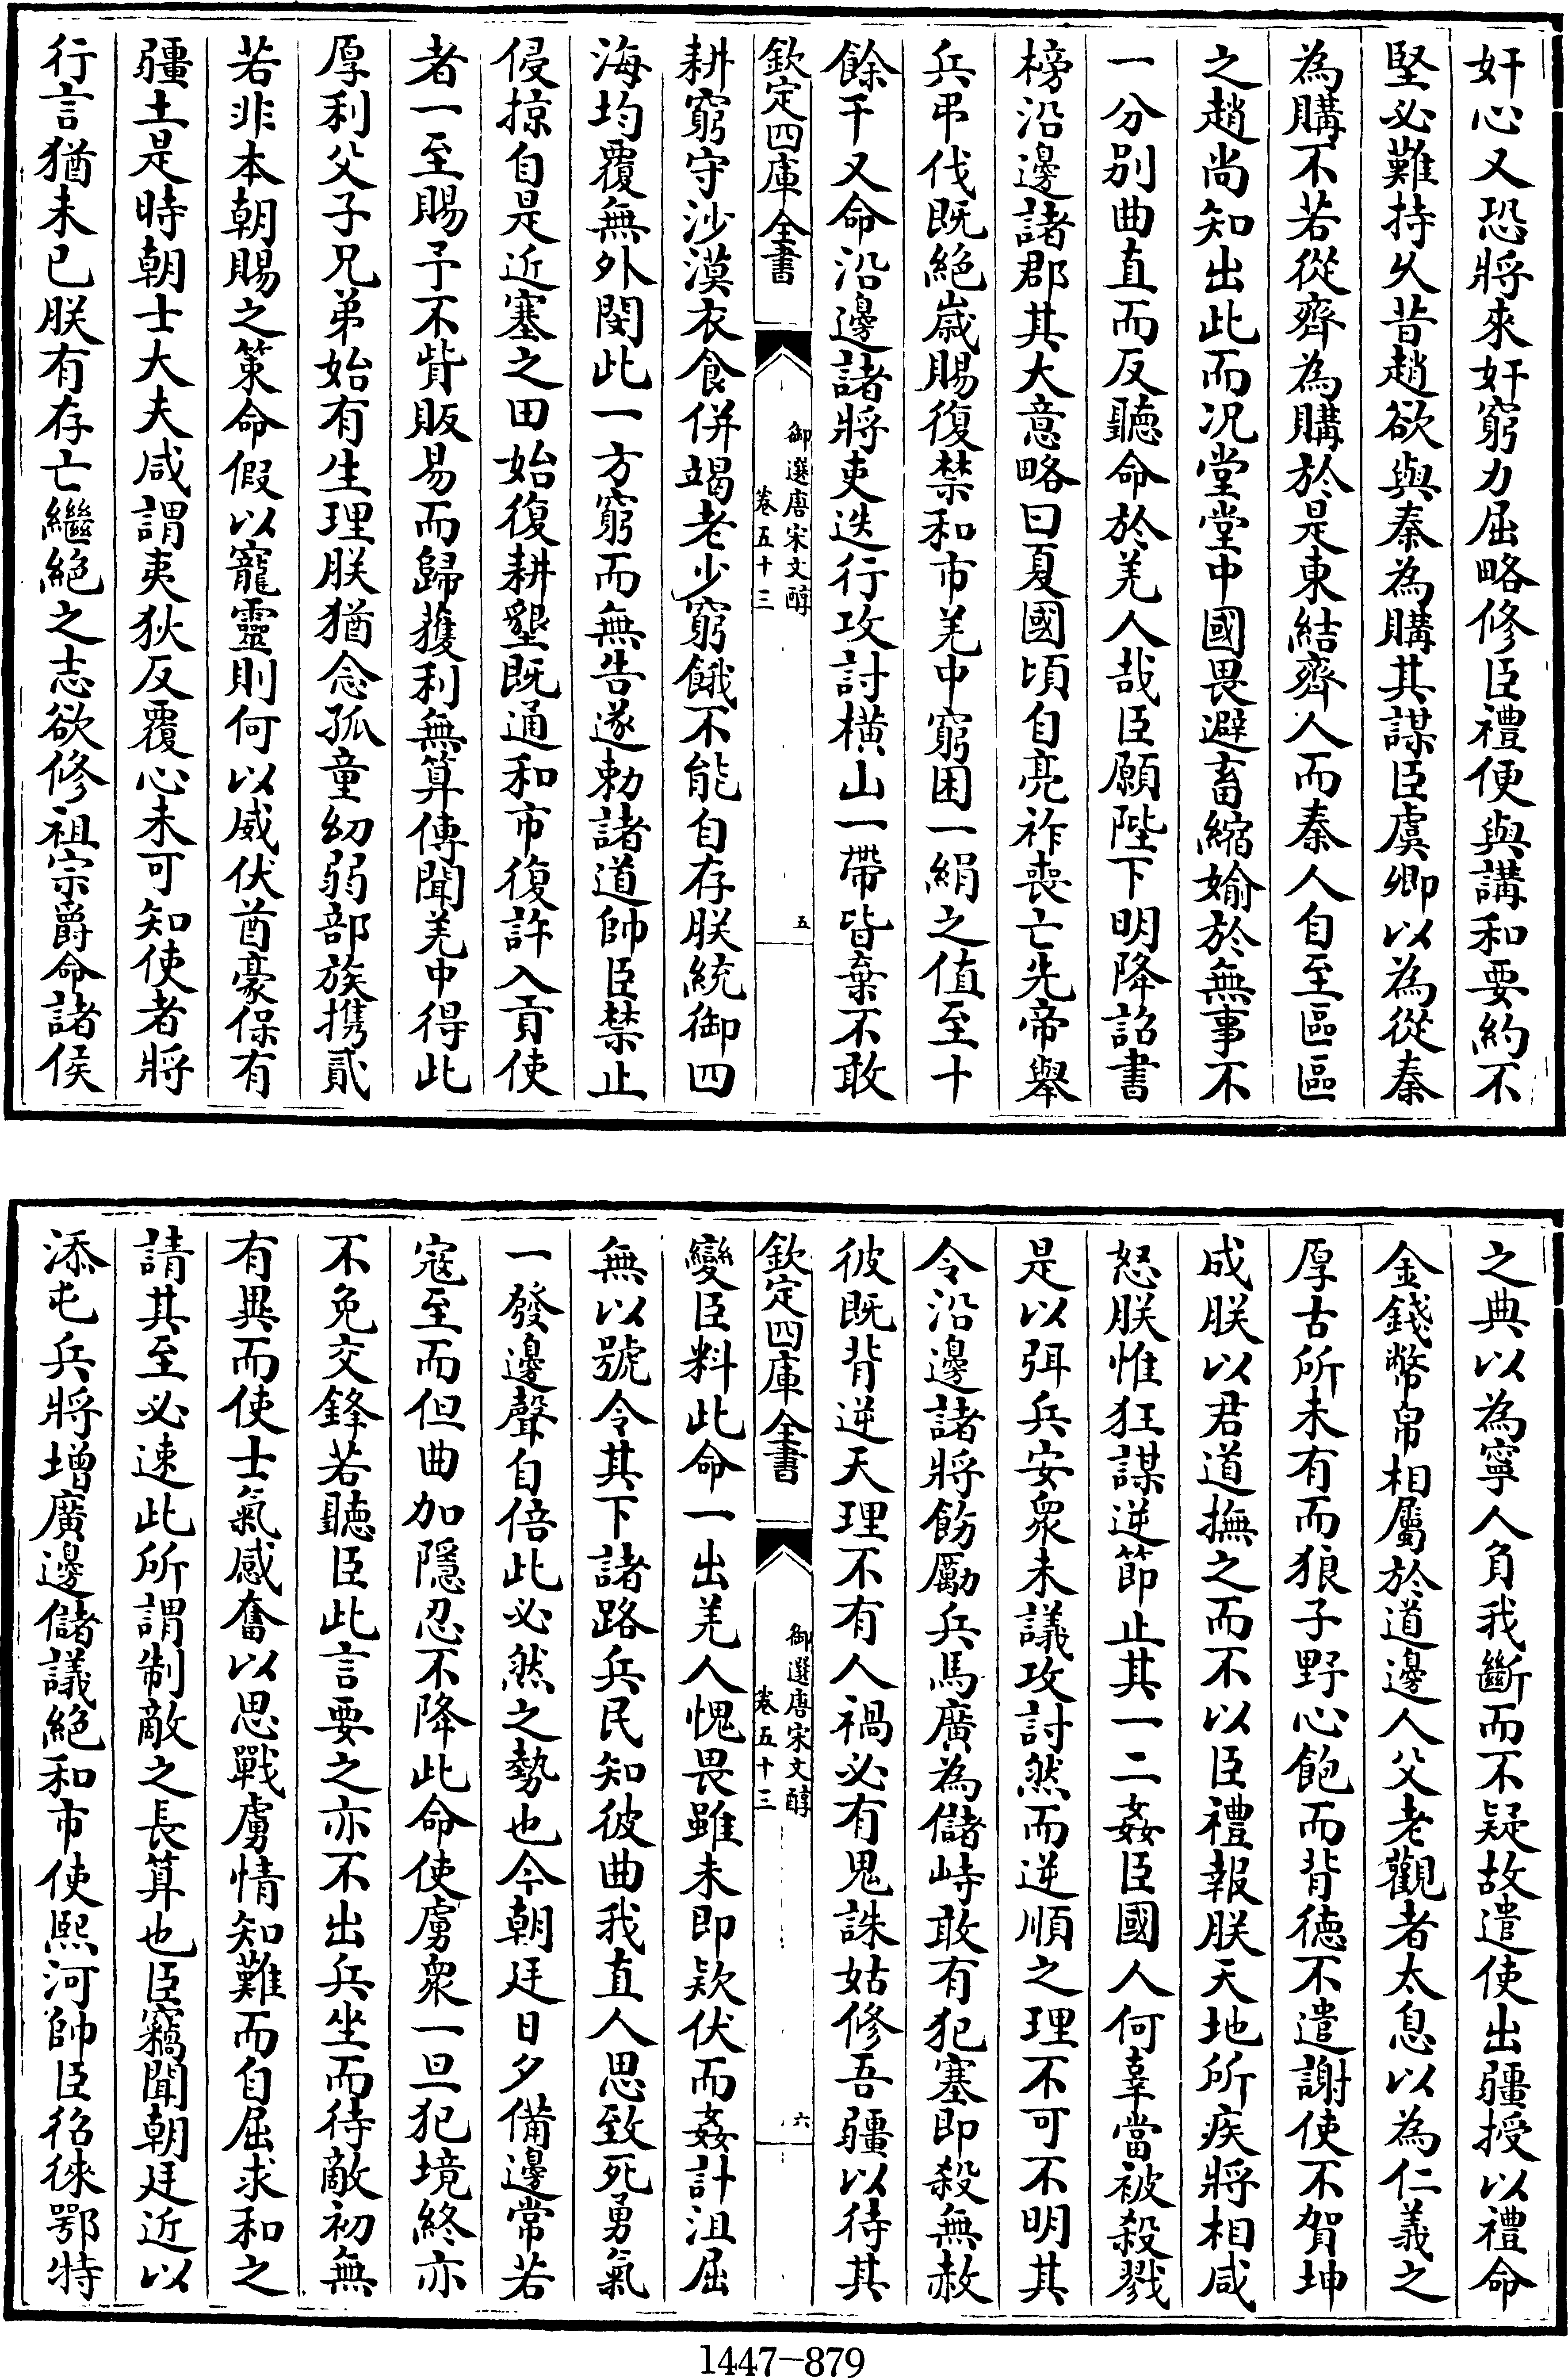 奸心又恐將來奸窮力屈略修臣禮便與講和要約不
堅必難持久昔趙欲與秦為購其謀臣虞卿以為從秦
為購不若從齊為購於是東結齊人而秦人自至區區
之趙尚知出此而况堂堂中國畏避畜縮媮於無事不
一分别曲直而反聽命於羌人哉臣願陛下明降詔書
榜沿邊諸郡其大意略曰夏國頃自亮祚喪亡先帝舉
兵弔伐既絶歲賜復禁和市羌中窮困一絹之值至十
餘千又命沿邊諸將吏迭行攻討横山一帶皆棄不敢
欽定四庫全書
御選唐宋文醇
卷五十三
五
耕窮守沙漠衣食併竭老少窮餓不能自存朕統御四
海均覆無外閔此一方窮而無告遂勅諸道帥臣禁止
侵掠自是近塞之田始復耕墾既通和市復許入貢使
者一至賜予不貲販易而歸獲利無算傳聞羌中得此
厚利父子兄弟始有生理朕猶念孤童幼弱部族携貳
若非本朝賜之策命假以寵靈則何以威伏酋豪保有
疆土是時朝士大夫咸謂夷狄反覆心未可知使者將
行言猶未已朕有存亡繼絶之志欲修祖宗爵命諸侯
之典以為寧人負我斷而不疑故遣使出疆授以禮命
金錢幣帛相屬於道邊人父老觀者太息以為仁義之
厚古所未有而狼子野心飽而背德不遣謝使不賀坤
成朕以君道撫之而不以臣禮報朕天地所疾將相咸
怒朕惟狂謀逆節止其一二姦臣國人何辜當被殺戮
是以弭兵安衆未議攻討然而逆順之理不可不明其
令沿邊諸將飭勵兵馬廣為儲峙敢有犯塞即殺無赦
彼既背逆天理不有人禍必有鬼誅姑修吾疆以待其
欽定四庫全書
御選唐宋文醇
卷五十三
六
變臣料此命一出羌人愧畏雖未即欵伏而姦計沮屈
無以號令其下諸路兵民知彼曲我直人思致死勇氣
一發邊聲自倍此必然之勢也今朝廷日夕備邊常若
寇至而但曲加隱忍不降此命使虜衆一旦犯境終亦
不免交鋒若聽臣此言要之亦不出兵坐而待敵初無
有異而使士氣感奮以思戰虜情知難而自屈求和之
請其至必速此所謂制敵之長算也臣竊聞朝廷近以
添屯兵將增廣邊儲議絶和市使熙河帥臣招徠鄂特
1447-879